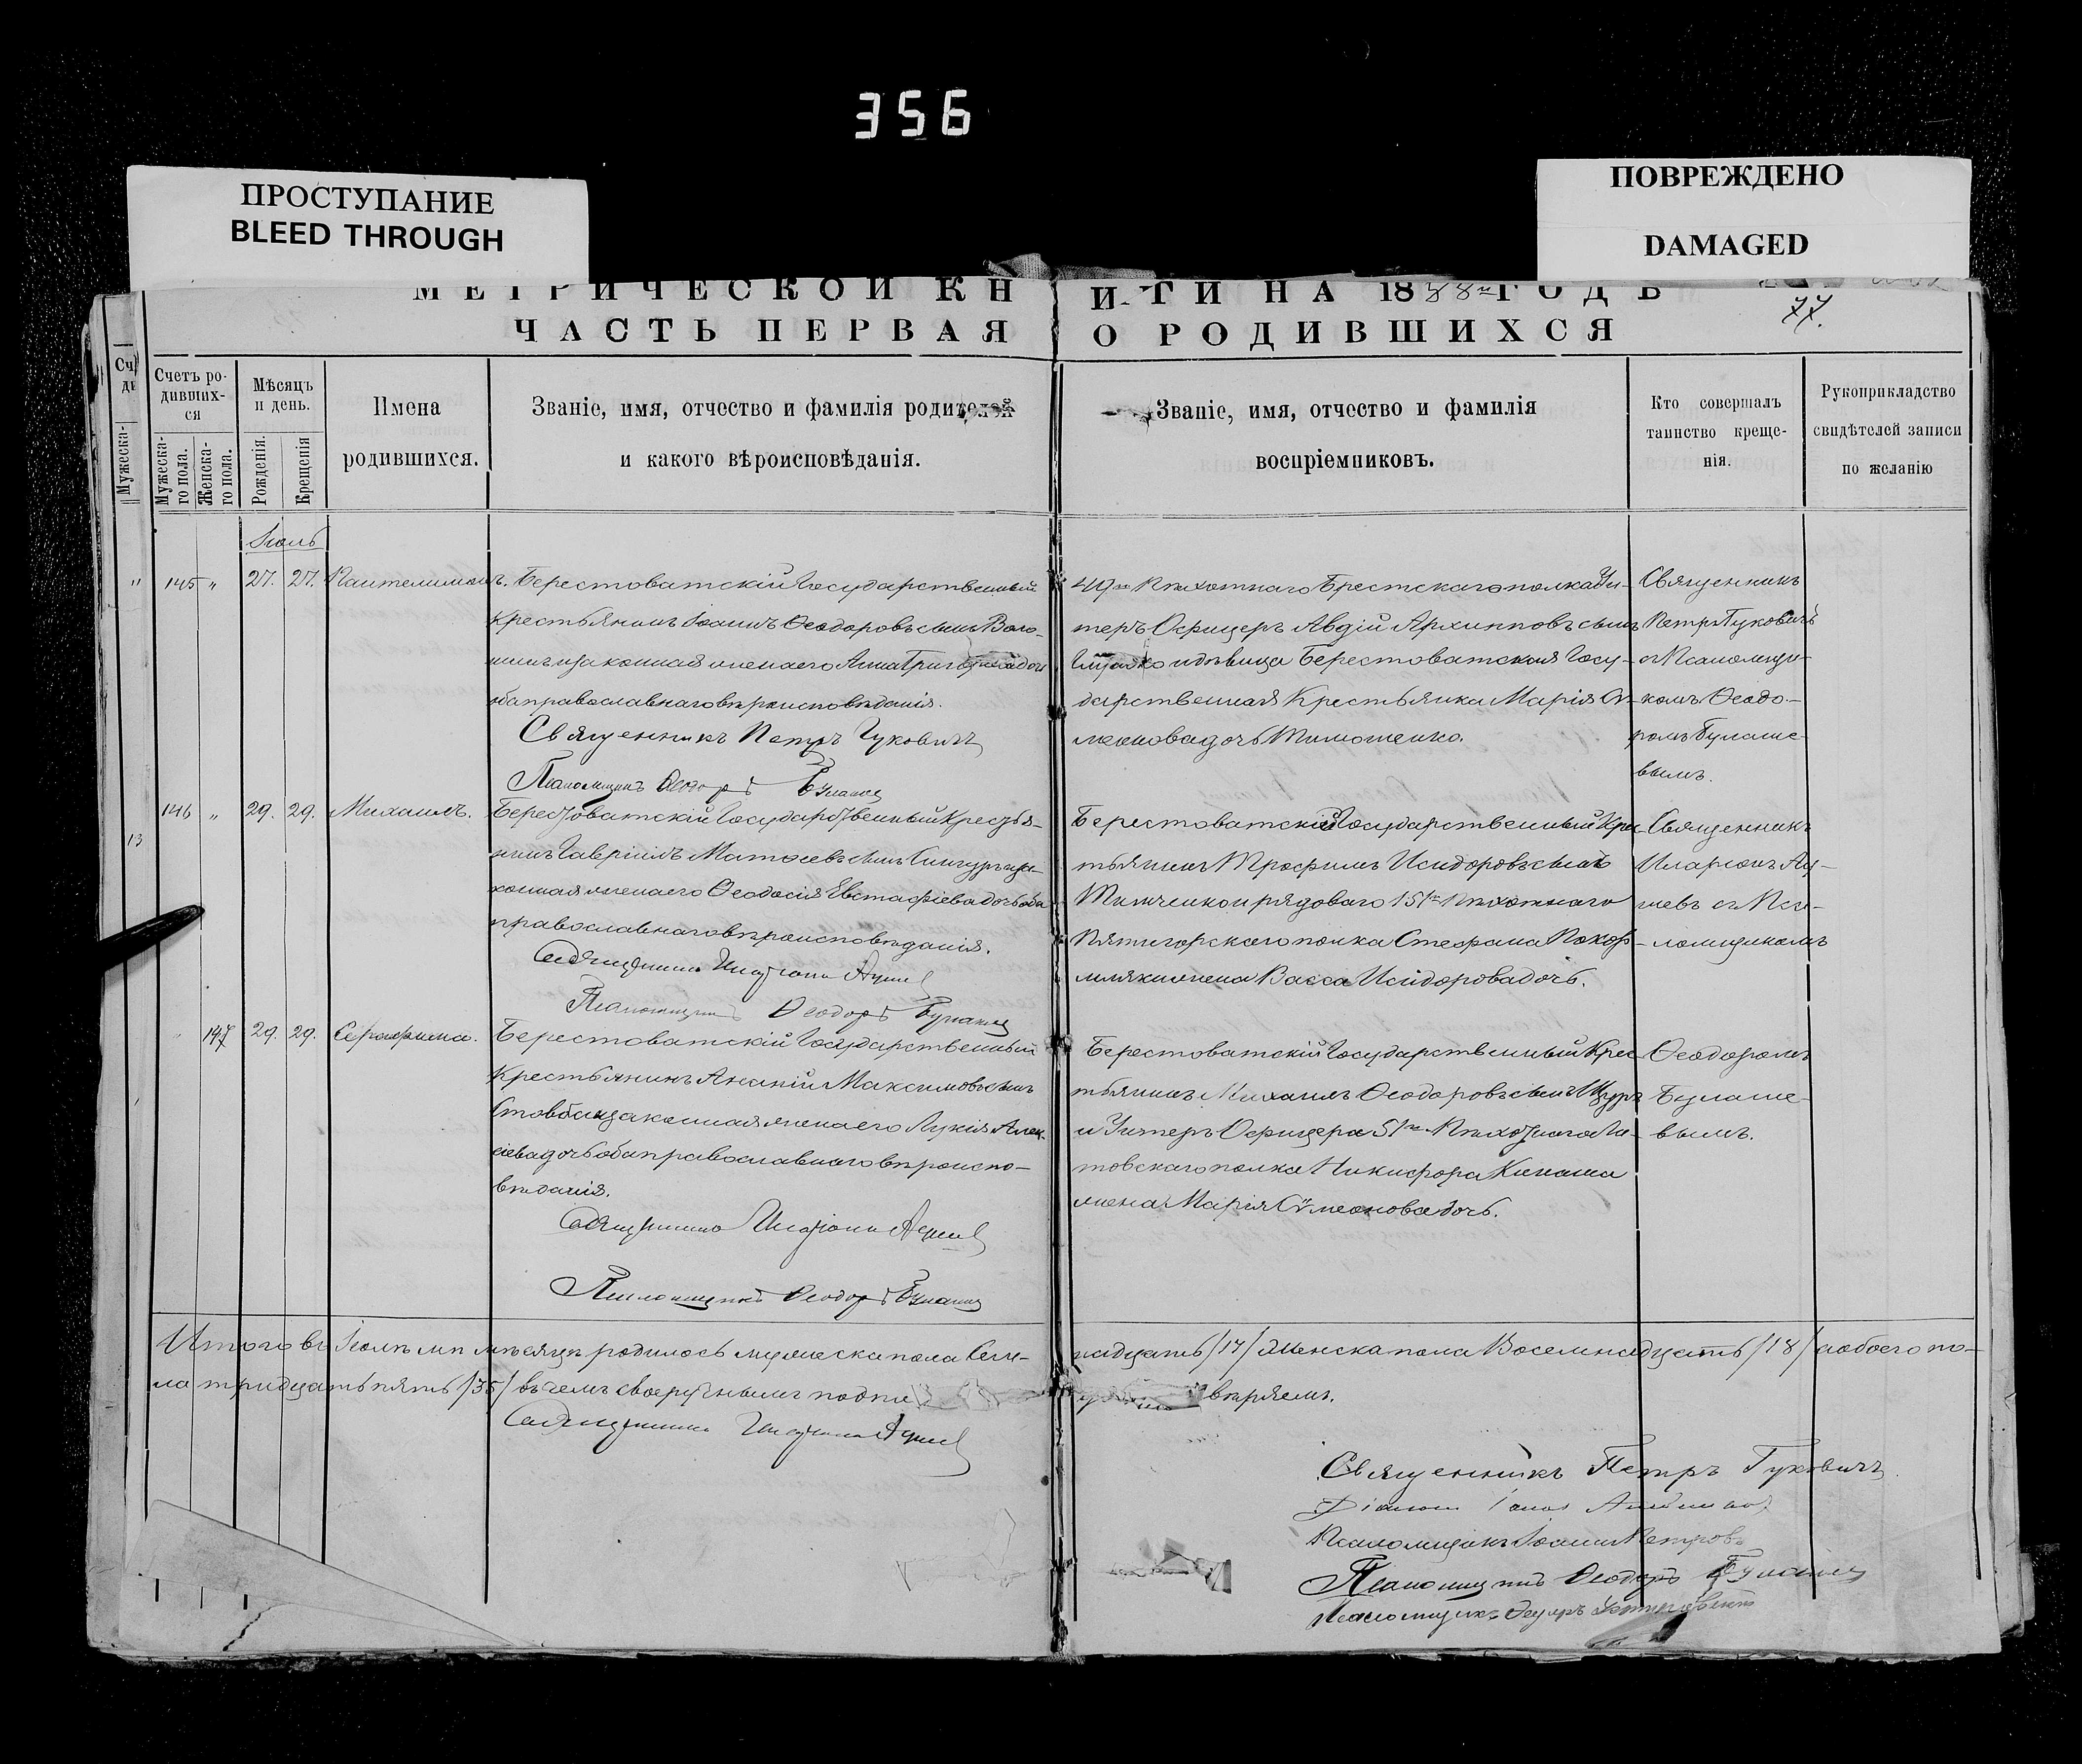 356
ПРОСТУПАНИЕ
BLEED THROUGH
ПОВРЕЖДЕНО
DAMAGED
МЕТРИЧЕСКОЙ КНИГИ НА 1888 г ГОДЪ
77.
ЧАСТЬ ПЕРВАЯ О РОДИВШИХСЯ
Счетъ ро-
дивших-
ся
Мужеска-
го пола.
Женска-
го пола.
Мѣсяцъ
и день.
Рожденія.
Крещенія
Имена
родившихся.
Званіе, имя, отчество и фамилія родителей
и какого вѣроисповѣданія.
Званіе, имя, отчество и фамилія
воспріемниковъ.
Кто совершалъ
таинство креще-
нія.
Рукоприкладство
свидѣтелей записи
по желанію
Мужеска-
Іюль
145 " 27. 27. Пантелимонъ.
Берестоватскій Государственный
Крестьянинъ Іоаннъ Ѳеодоровъ сынъ Воло-
шинъ и законная жена его Анна дочь
оба православнаго вѣроисповѣданія.
Священникъ Петръ Гуковичъ
Псаломщикъ Ѳеодоръ
49го Пѣхотнаго Брестскаго полка Ун-
теръ Офицеръ Авдій Архипповъ сынъ
и дѣвица Берестоватская Госу-
дарственная Крестьянка Марія Сѵ-
меонова дочь Тимошенко.
Священникъ
Петръ Гуковичъ
съ Псаломщи-
комъ Ѳеодо-
ромъ Булаше-
вымъ.
146 " 29. 29. Михаилъ.
Берестоватскій Государственный Крестья-
нинъ Гавріилъ Матѳеевъ сынъ и за-
конная жена его Ѳеодосія Евстафіева дочь оба
православнаго вѣроисповѣданія.
Священникъ Иларіонъ
Псаломщикъ Ѳеодоръ
Берестоватскій Государственный Крес-
тьянинъ Трофимъ Исидоровъ сынъ
и рядоваго 151го Пѣхотнаго
Пятигорскаго полка Стефана
жена Васса Исидорова дочь.
Священникъ
Иларіонъ
съ Пса-
ломщикомъ
13
147 29. 29. Серафима.
Берестоватскій Государственный
Крестьянинъ Ананій Максимовъ сынъ
и законная жена его Лукія Алек-
сіева дочь оба православнаго вѣроиспо-
вѣданія.
Священникъ Иларіонъ
Псаломщикъ Ѳеодоръ
Берестоватскій Государственный Крес-
тьянинъ Михаилъ Ѳеодоровъ сынъ
и Унтеръ Офицера 51го Пѣхотнаго Ли-
товскаго полка Никифора
жена Марія Сѵмеонова дочь.
Ѳеодоромъ
Булаше-
вымъ.
Итого въ Іюлѣ мѣсяцѣ родилось мужеска пола Сем-
надцать /17/ женска пола Восемнадцать /18/ а обоего по-
ла тридцать пять /35/ въ чемъ своеручнымъ подпи вѣряемъ.
Священникъ Иларіонъ
Священникъ Петръ Гуковичъ
Псаломщикъ Іоаннъ Петровъ
Псаломщикъ Ѳеодоръ
Псаломщикъ